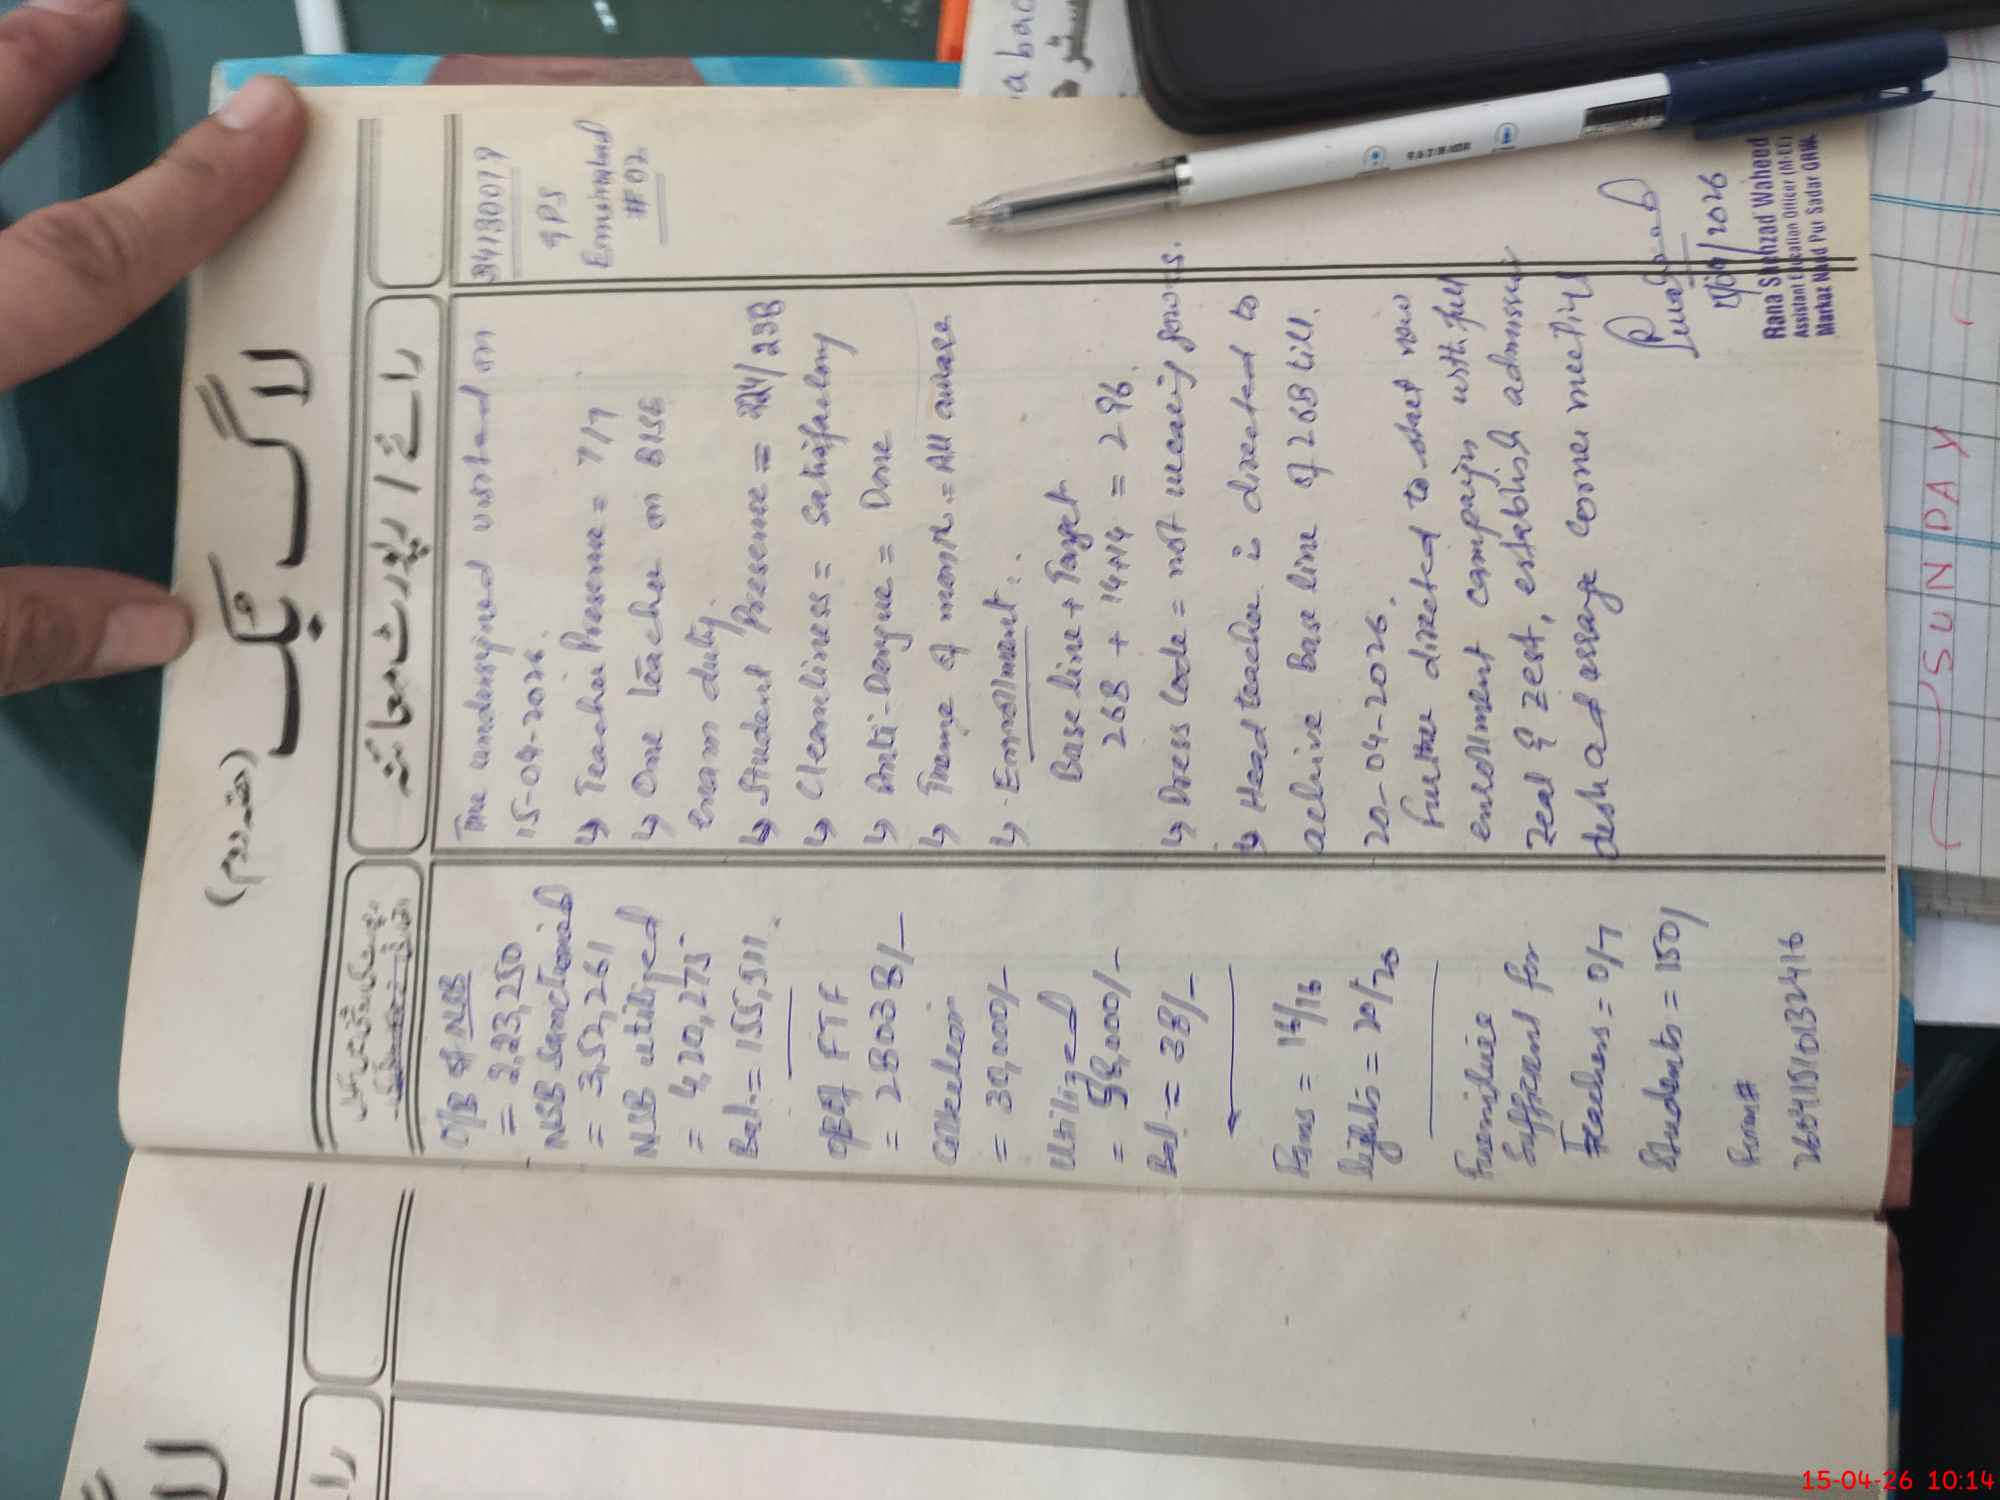 (حصّہ دوم)
لاگ بک
رائے / رپورٹ معائنہ
34130079
GPS
Emuinabad
#F02
The undersigned visited on
15-04-2026.
↳ Teacher Presense = 7/7
↳ One teacher on BISE
exam duty.
↳ Student Presense = 224/238
↳ Cleanliness = Satisfactory
↳ Anti-Dengue = Done
↳ Theme of month = All aware
↳ Enrollment:
Base line + Target
268 + 14+14 = 296.
↳ Dress Code = not wearing gowns.
↳ Head teacher is directed to
achive Base line of 268 till
20-04-2026.
Further directed to start new
enrollment campaign with full
zeal & zest, establish admission
desk and arrange corner meetings
2026
Rana Shehzad Waheed
Assistant Education Officer (M-EE)
Markaz Nand Pur Sadar GRW.
O/B of NSB
= 2,23,250
NSB Sanctioned
= 3,52,261
NSB utilized
= 4,20,275
Bal = 155,511
FTF
= 28038/-
Collection
= 30,000/-
Utilized
= 58,000/-
Bal = 38/-
Fans = 16/16
lights = 20/20
Furniture
Sufficient for
Teachers = 0/7
Students = 150/
Form#
SUNDAY
15-04-26 10:14